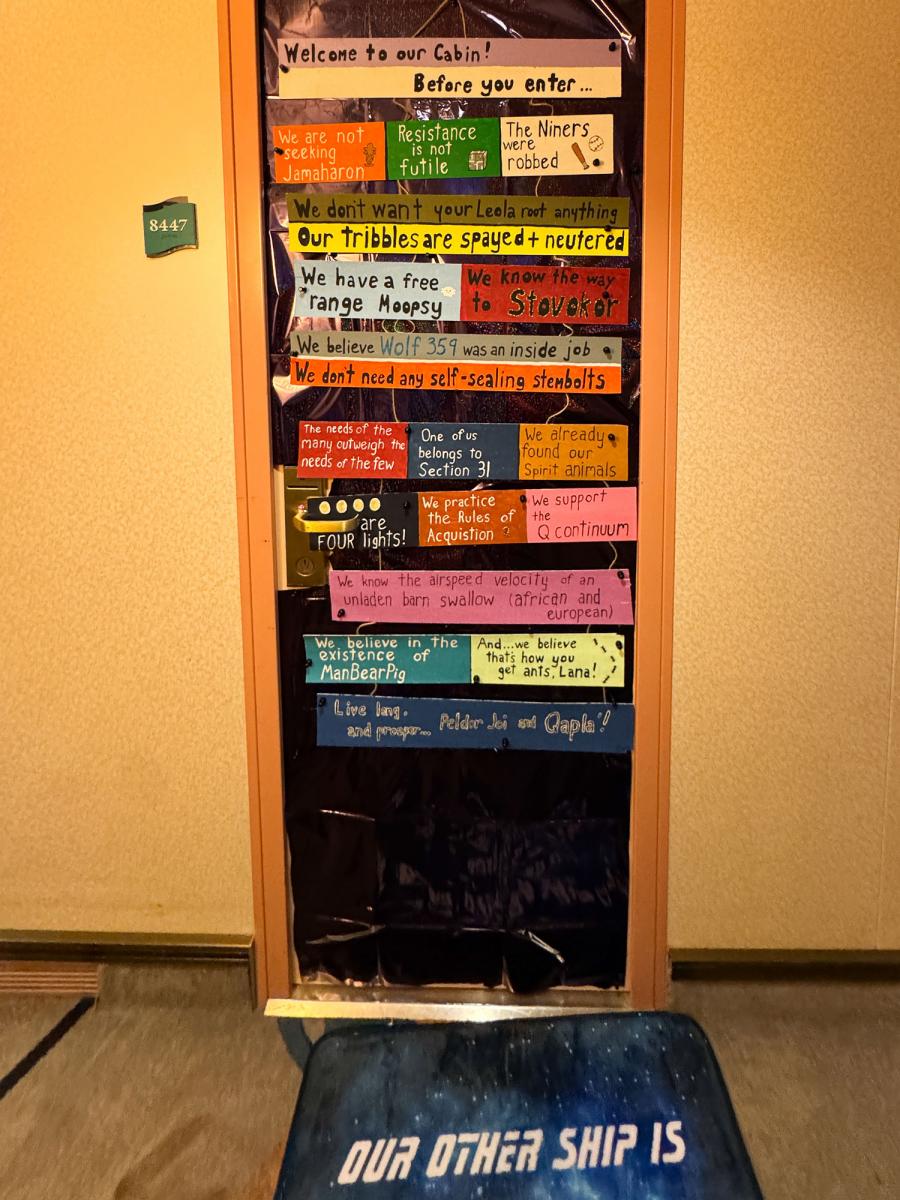 Welcome to our Cabin!
Before you enter...
We are not
seeking
Jamaharon
Resistance
is not
futile
The Niners
were
robbed
8447
We don't want your Leola root anything
Our Tribbles are spayed + neutered
We have a free
range Moopsy
We know the way
to Stovokor
We believe Wolf 359 was an inside job
We don't need any self-sealing stembolts
The needs of the
many outweigh the
needs of the few
One of us
belongs to
Section 31
We already
found our
Spirit animals
are
FOUR lights!
We practice
the Rules of
Acquistion
We support
the
Q continuum
We know the airspeed velocity of an
unladen barn swallow (african and
european)
We believe in the
existence of
ManBearPig
And...we believe
that's how you
get ants, Lana!
Live long.
and prosper... Peldor Joi and Qapla'!
OUR OTHER SHIP IS